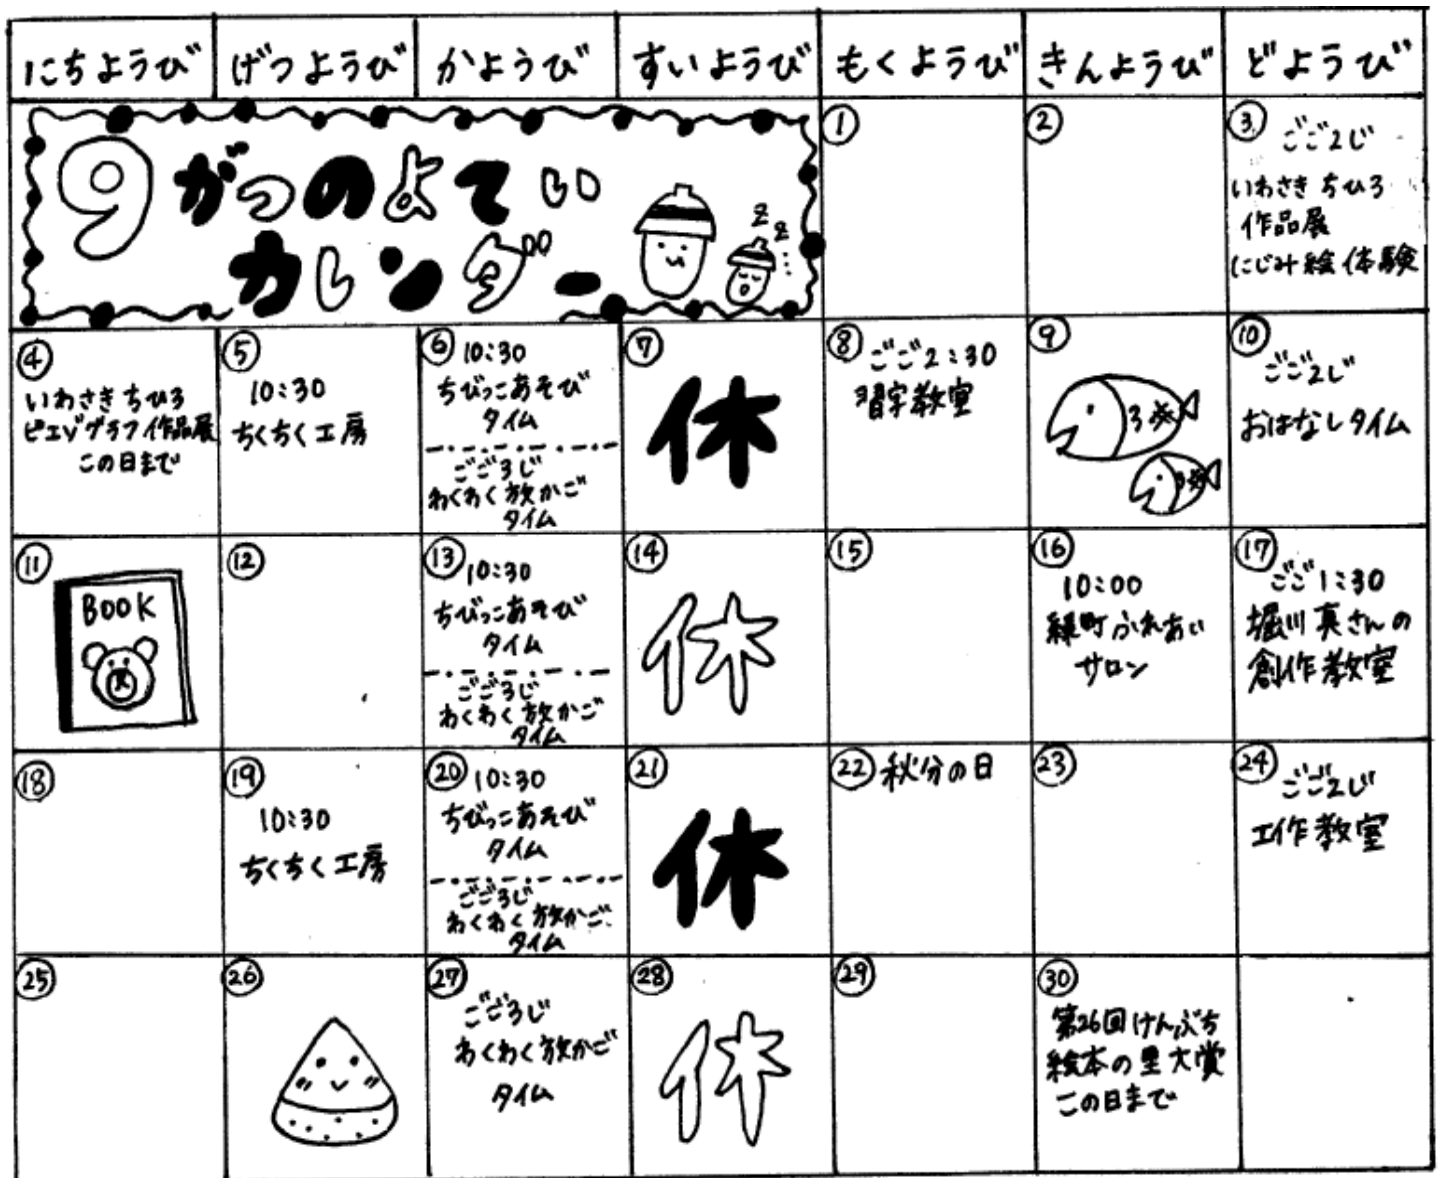 にちようび
げつようび
かようび
すいようび
もくようび
きんようび
どようび
9がつのよてい
カレンダー
zz...
①
②
③
ごご2じ
いわさき ちひろ
作品展
にじみ絵体験
④
いわさき ちひろ
ピエゾグラフ作品展
この日まで
⑤
10:30
ちくちく工房
⑥ 10:30
ちびっこあそび
タイム
ごご3じ
わくわく放かご
タイム
⑦
休
⑧ ごご2:30
習字教室
⑨
⑩
ごご2じ
おはなしタイム
⑪
BOOK
⑫
⑬ 10:30
ちびっこあそび
タイム
ごご3じ
わくわく放かご
タイム
⑭
休
⑮
⑯
10:00
緑町ふれあい
サロン
⑰
ごご1:30
堀川真さんの
創作教室
⑱
⑲
10:30
ちくちく工房
⑳ 10:30
ちびっこあそび
タイム
ごご3じ
わくわく放かご
タイム
㉑
休
㉒ 秋分の日
㉓
㉔
ごご2じ
工作教室
㉕
㉖
㉗
ごご3じ
わくわく放かご
タイム
㉘
休
㉙
㉚
第26回けんぶち
絵本の里大賞
この日まで